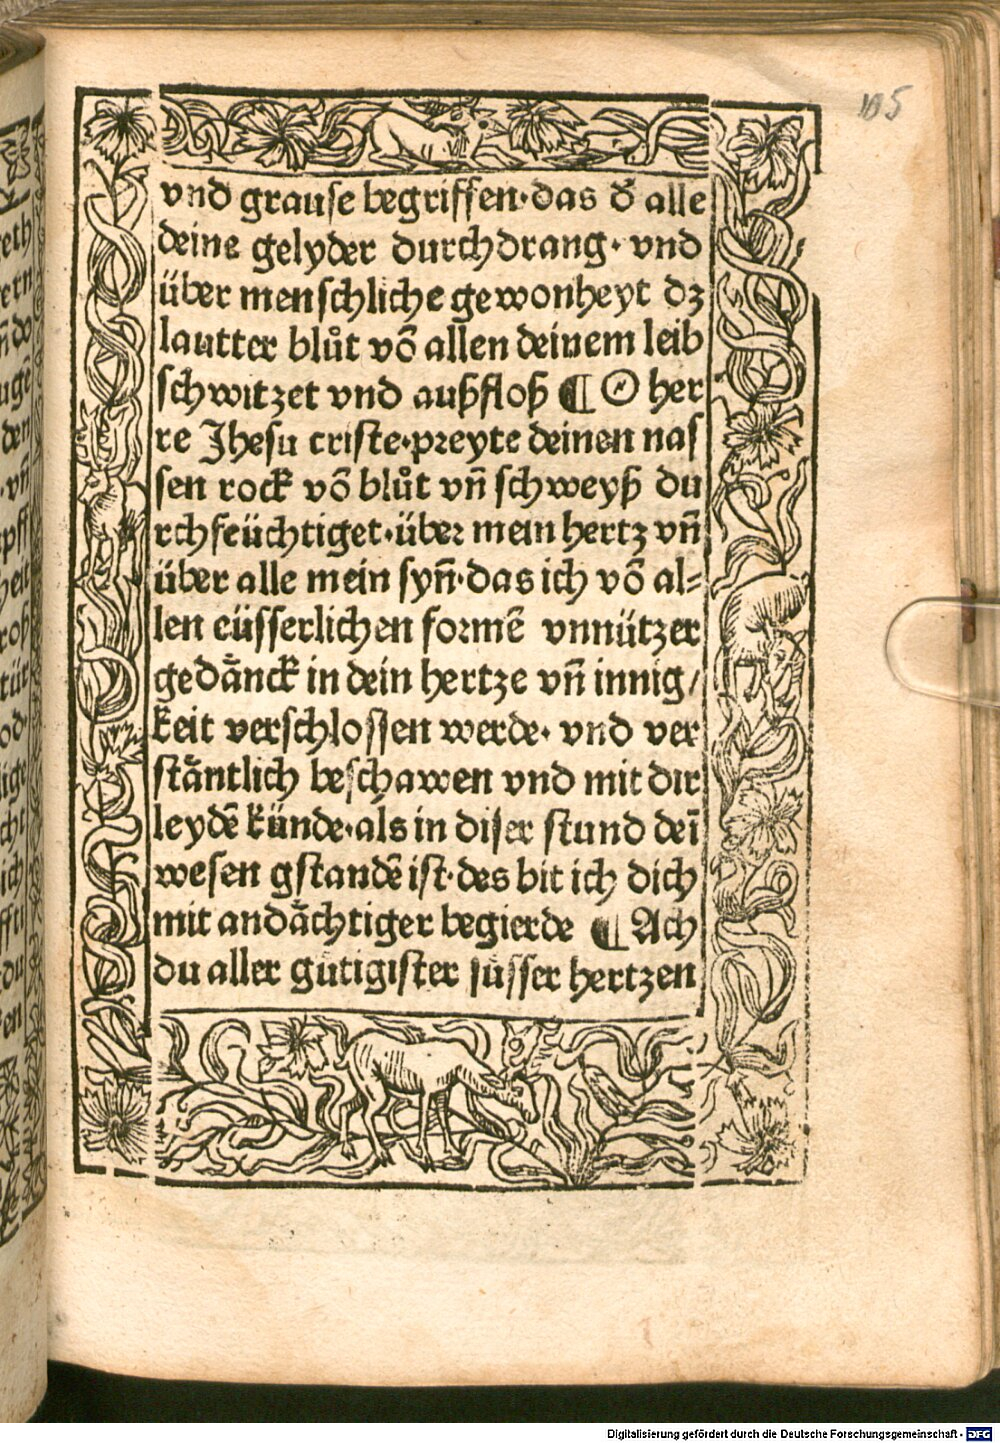 105
vnd grause begriffen·das d᷑ alle
deine gelyder durchdrang· vnd
über menschliche gewonheyt dz
lautter blůt võ allen deinem leib
schwitzet vnd außfloß ¶ O her
re Jhesu criste·preyte deinen nas
sen rock võ blůt vñ schweyß du
rchfeüchtiget·über mein hertz vñ
über alle mein syñ·das ich võ al-
len eüsserlichen formẽ vnnützer
gedånck in dein hertze vñ innig/
keit verschlossen werde· vnd ver
ståntlich beschawen vnd mit dir
leydẽ künde·als in diser stund deĩ
wesen gstandẽ ist·des bit ich dich
mit andåchtiger begierde ¶ Ach
du aller gütigister süsser hertzen
Digitalisierung gefördert durch die Deutsche Forschungsgemeinschaft - DFG